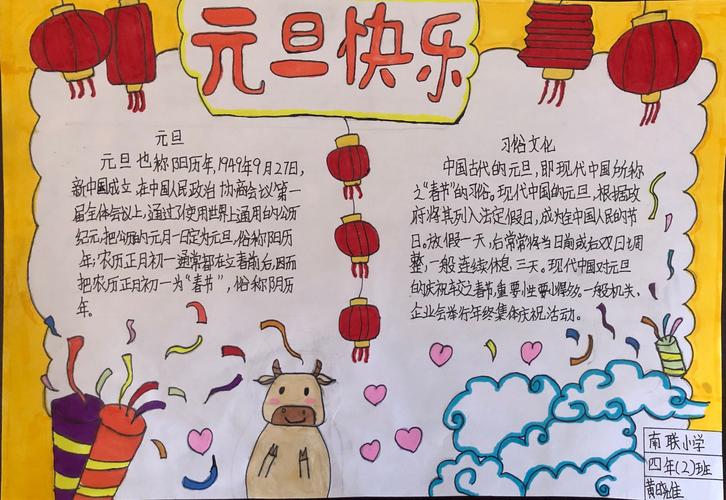 元旦快乐
元旦
元旦也称阳历年,1949年9月27日,
新中国成立,在中国人民政治协商会议第一
届全体会议上,通过了使用世界上通用的公历
纪元,把公历的元月一日定为元旦,俗称阳历
年;农历正月初一通常都在立春前后,因而
把农历正月初一为“春节”,俗称阴历
年。
习俗文化
中国古代的元旦,即现代中国所称
之“春节”的习俗。现代中国的元旦,根据政
府将其列入法定假日,成为全中国人民的节
日。放假一天,后常常将当日前或右双日调
整,一般连续休息三天。现代中国对元旦
的庆祝较之春节,重要性要小得多。一般机关、
企业会举行年终集体庆祝活动。
南联小学
四年(2)班
黄晓佳